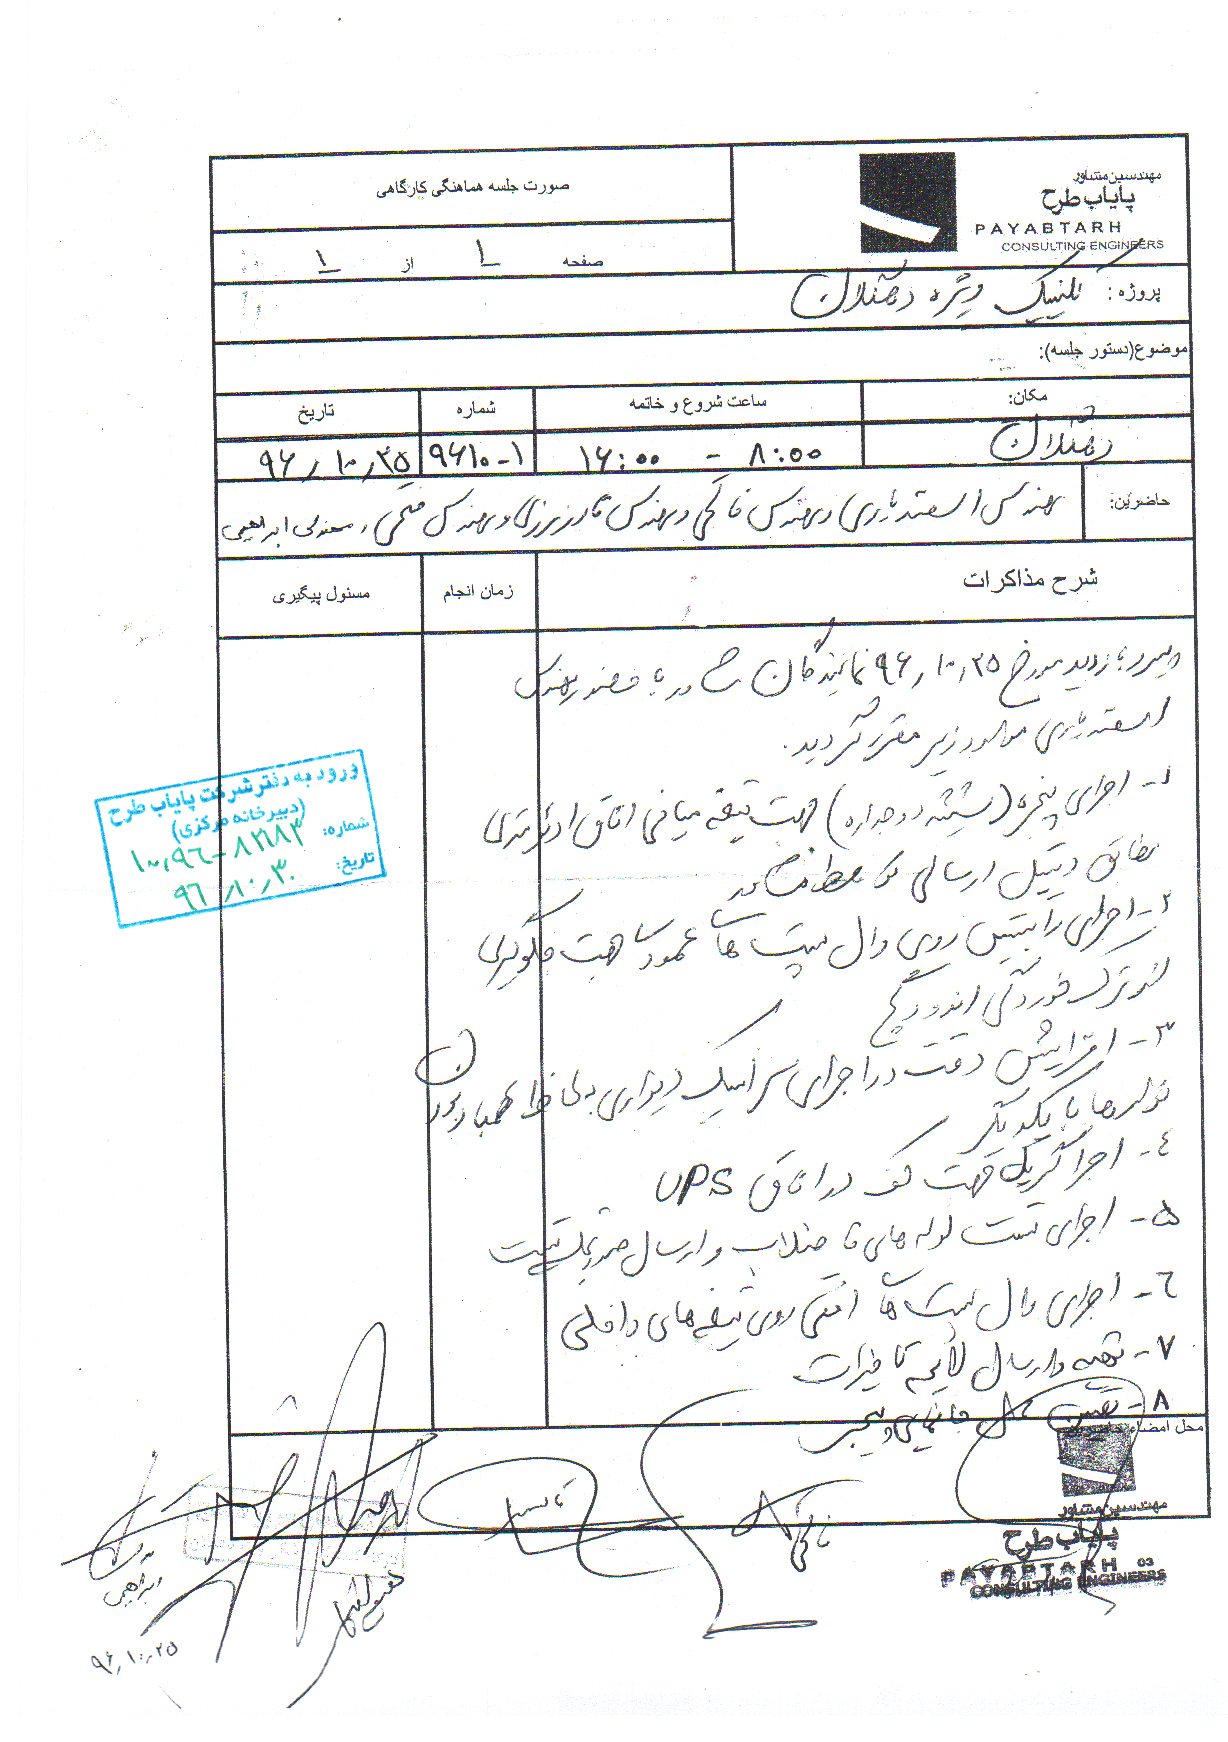 مهندسین مشاور
پایاب طرح
PAYABTARH
CONSULTING ENGINEERS
صورت جلسه هماهنگی کارگاهی
صفحه ۱ از ۱
پروژه : کلینیک ویژه دهگلان
موضوع(دستور جلسه):
مکان:
ساعت شروع و خاتمه
شماره
تاریخ
دهگلان
۸:۰۰ - ۱۶:۰۰
۹۶۱۰-۱
۹۶,۱۰,۲۵
حاضرین: مهندس اسفندیاری و مهندس خاکی و مهندس و مهندس ، مهندس ابراهیمی
شرح مذاکرات
زمان انجام
مسئول پیگیری
پیرو بازدید مورخ ۹۶,۱۰,۲۵ نمایندگان و با حضور مهندس
اسفندیاری موارد زیر مقرر گردید.
۱- اجرای پنجره (شیشه دوجداره) جهت تیغه میانی اتاق
مطابق دیتیل ارسالی
۲- اجرای رابیتس روی وال پست های عمودی جهت جلوگیری
از ترک خوردگی اندود گچ
۳- افزایش دقت در اجرای سرامیک دیواری
با یکدیگر
٤- اجرا جهت کف در اتاق UPS
۵- اجرای تست لوله های فاضلاب و ارسال صورتجلسه تست
٦- اجرای وال پست های افقی روی تیغه های داخلی
۷- تهیه و ارسال لایحه تاخیرات
۸- تعیین محل
محل امضاء
ورود به دفتر شرکت پایاب طرح
(دبیرخانه مرکزی)
شماره:
تاریخ: ۹۶,۱۰,۳۰
خاکی
مهندسین مشاور
پایاب طرح
PAYABTARH 03
CONSULTING ENGINEERS
ابراهیمی
۹۶,۱۰,۲۵